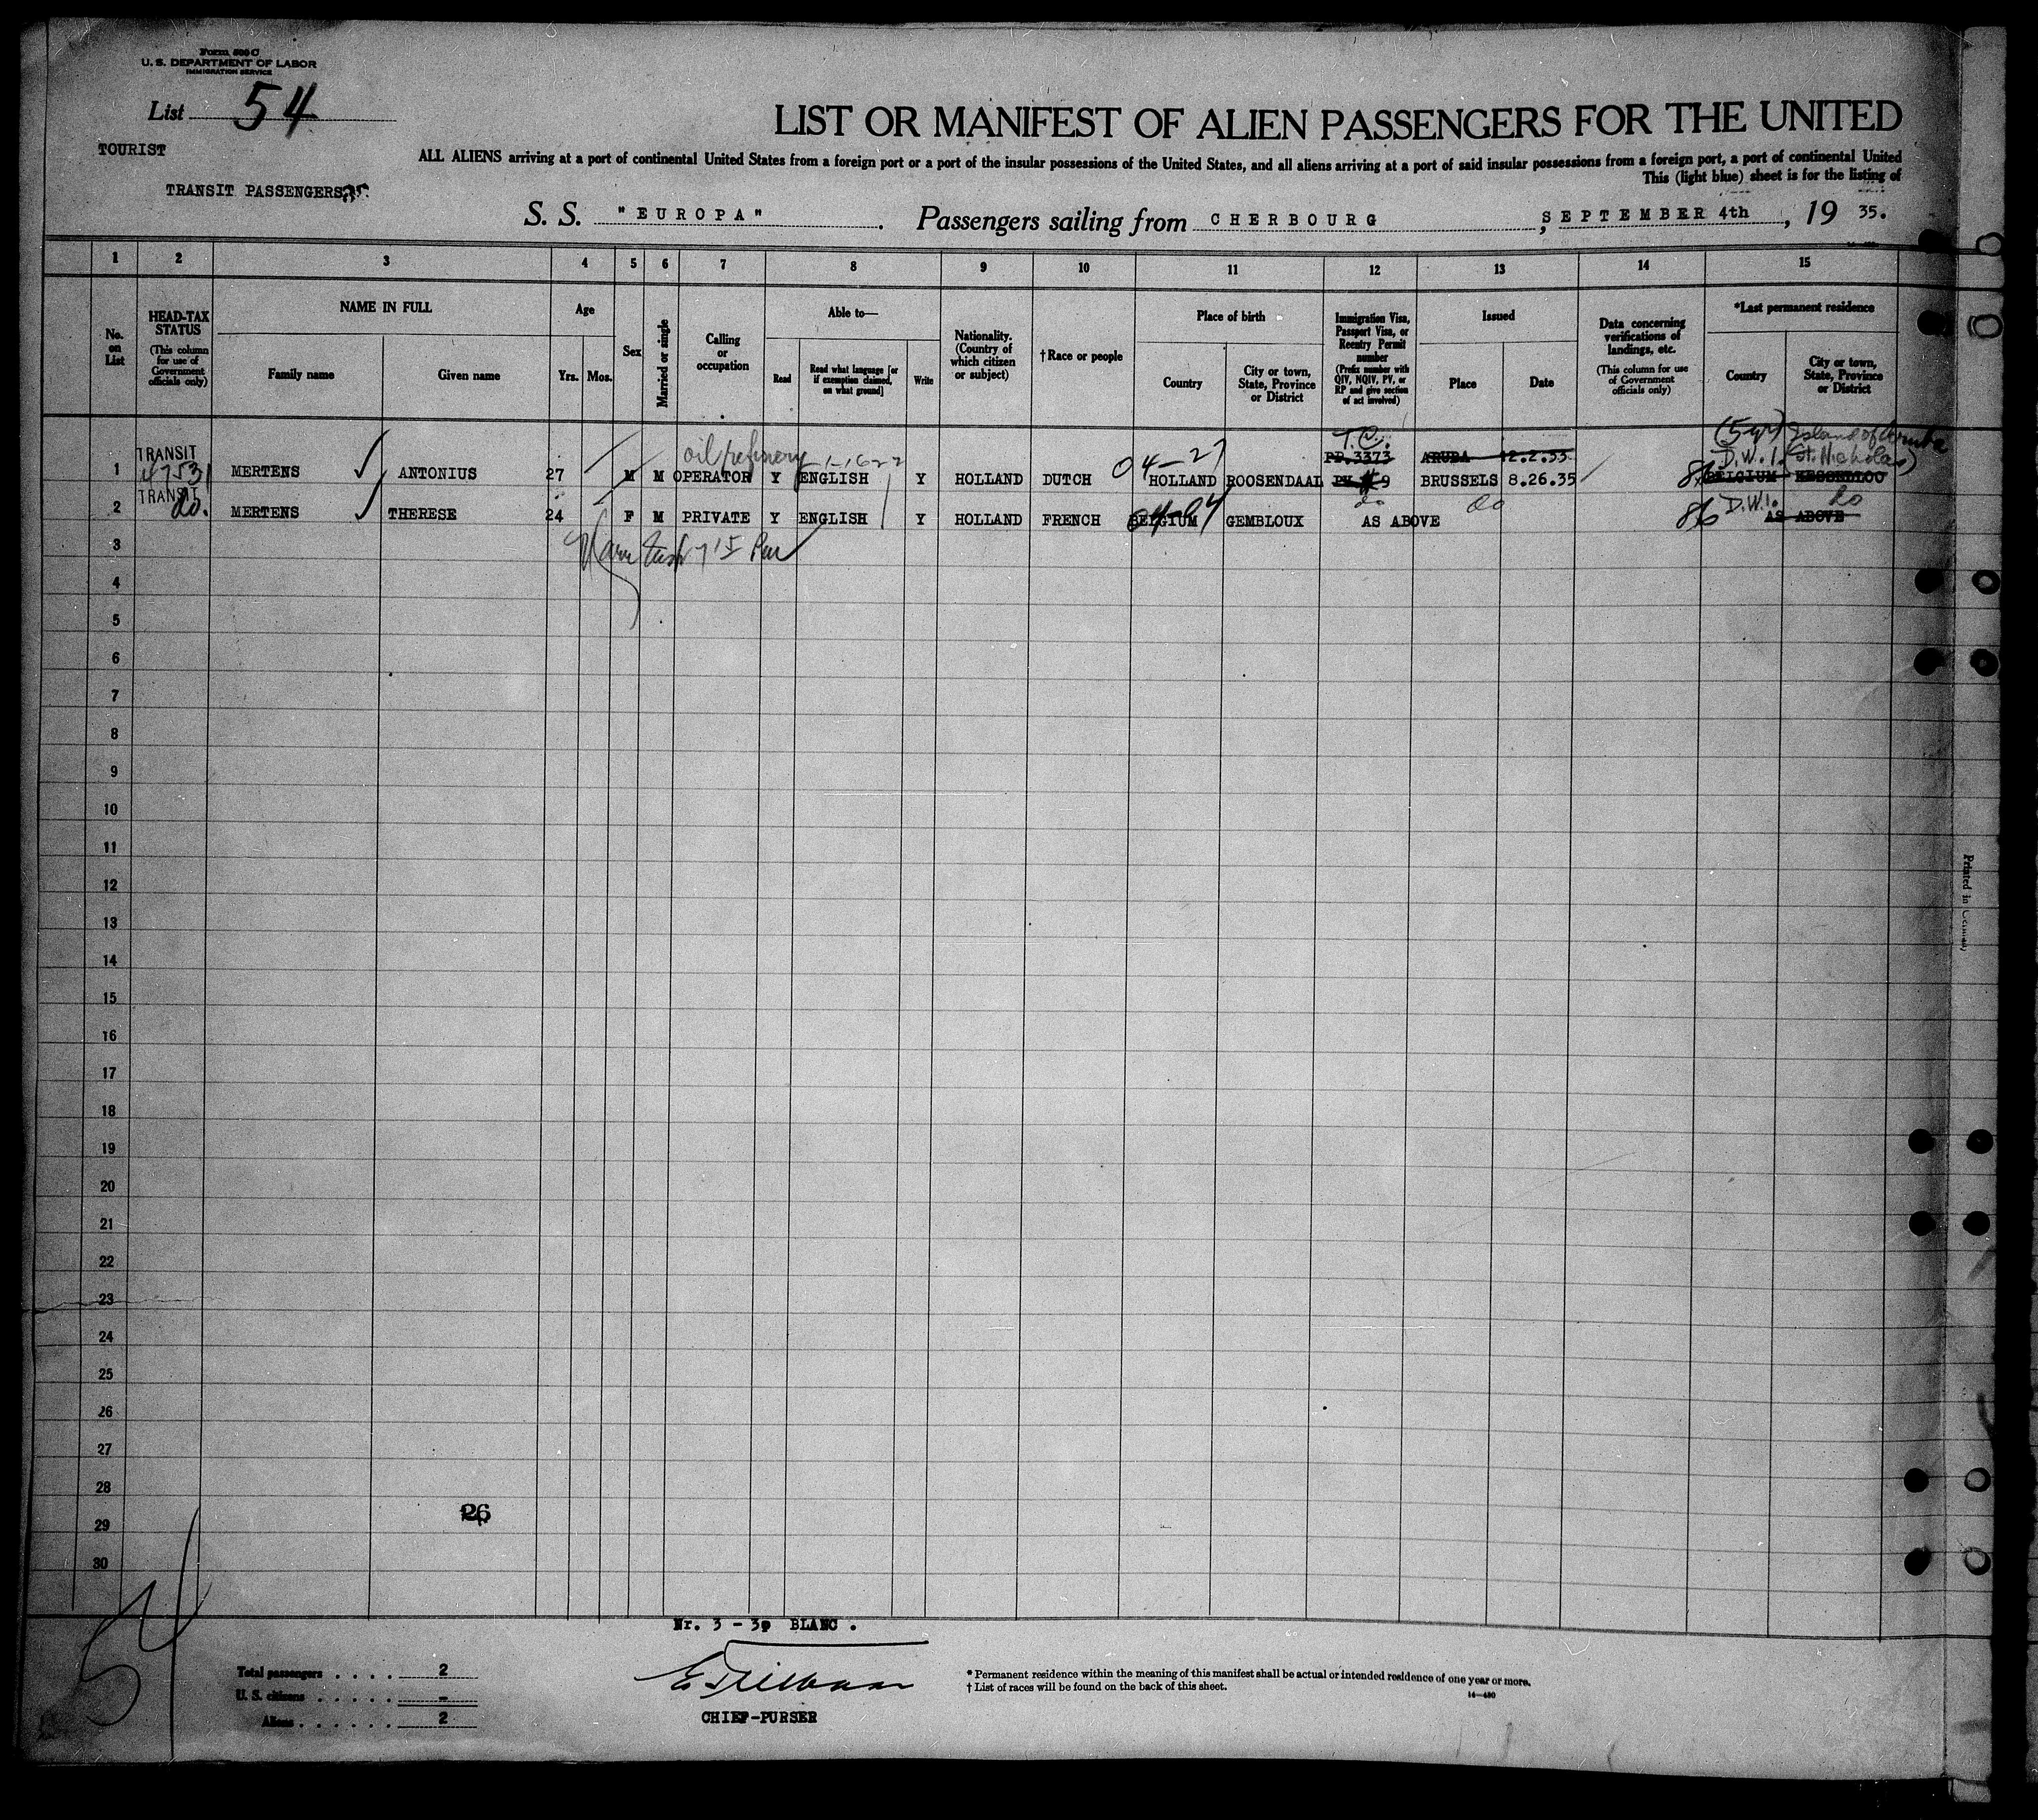 Form 500 C
U. S. DEPARTMENT OF LABOR
IMMIGRATION SERVICE
List 54
TOURIST
TRANSIT PASSENGERS
LIST OR MANIFEST OF ALIEN PASSENGERS FOR THE UNITED
ALL ALIENS arriving at a port of continental United States from a foreign port or a port of the insular possessions of the United States, and all aliens arriving at a port of said insular possessions from a foreign port, a port of continental United
This (light blue) sheet is for the listing of
S. S. "EUROPA". Passengers sailing from CHERBOURG, SEPTEMBER 4th, 19 35.
1 2 3 4 5 6 7 8 9 10 11 12 13 14 15
No. on List
HEAD-TAX STATUS (This column for use of Government officials only)
NAME IN FULL
Family name
Given name
Age
Yrs. Mos.
Sex
Married or single
Calling or occupation
Able to—
Read
Read what language [or if exemption claimed, on what ground]
Write
Nationality. (Country of which citizen or subject)
†Race or people
Place of birth
Country
City or town, State, Province or District
Immigration Visa, Passport Visa, or Reentry Permit number (Prefix number with QIV, NQIV, PV, or RP and give section of act involved)
Issued
Place
Date
Data concerning verifications of landings, etc. (This column for use of Government officials only)
*Last permanent residence
Country
City or town, State, Province or District
TRANSIT oil refinery 1-1622 04-27 T.C. PP.3373 ARUBA 12.2.33. (5 yr) Island of Aruba
D.W.I. (St. Nicholas)
1 47531 MERTENS ANTONIUS 27 M M OPERATOR Y ENGLISH Y HOLLAND DUTCH HOLLAND ROOSENDAAL BRUSSELS 8.26.35 86 BELGIUM KESSELLOO
TRANSIT do do D.W.I. do
2 do. MERTENS THERESE 24 F M PRIVATE Y ENGLISH Y HOLLAND FRENCH BELGIUM GEMBLOUX AS ABOVE 86 AS ABOVE
3
4
5
6
7
8
9
10
11
12
13
14
15
16
17
18
19
20
21
22
23
24
25
26
27
28
29
30
26
54
Nr. 3 - 30 BLANC.
Total passengers . . . . 2
U. S. citizens . . . . . –
Aliens . . . . . . 2
CHIEF-PURSER
* Permanent residence within the meaning of this manifest shall be actual or intended residence of one year or more.
† List of races will be found on the back of this sheet.
14—480
Printed in Germany